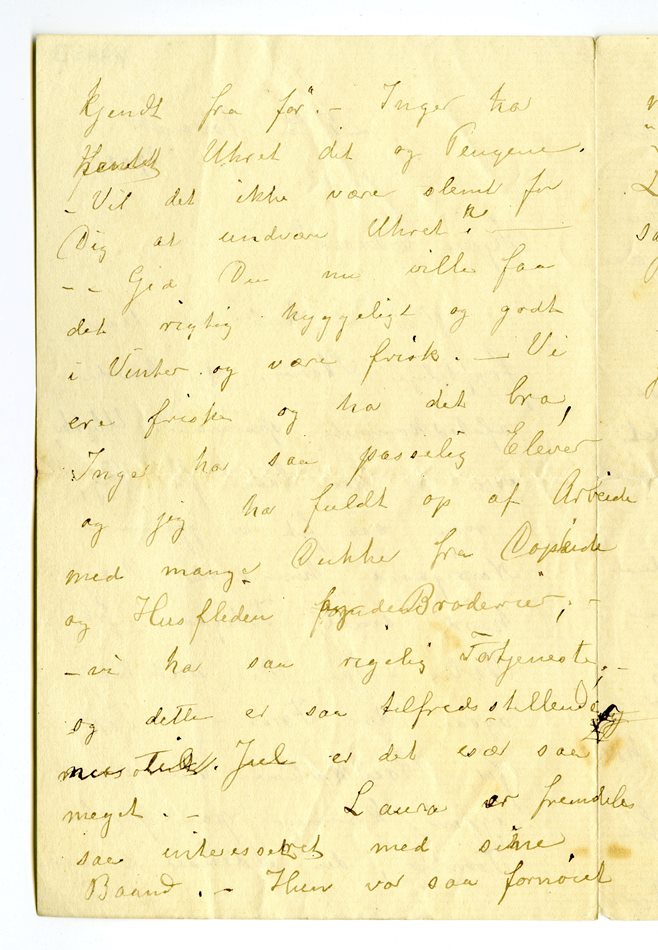 Kjendt fra før". – Inger har
hentet Uhret dit og Pengene.
– Vil det ikke være slemt for
Dig at undvære Uhret? –
– – Gid Du nu ville faa
det rigtig hyggeligt og godt
i Vinter og være frisk. – Vi
ere friske og ha det bra,
Inger har saa passelig Elever
og jeg ha fuldt op af Arbeide
med mange Dukker fra
og Husfliden Broderier, –
– vi ha saa rigelig Fortjeneste, –
og dette er saa tilfredsstillende,
til Jul er det især saa
meget. – Laura er fremdeles
saa interesseret med sine
Baand. – Hun var saa fornøiet